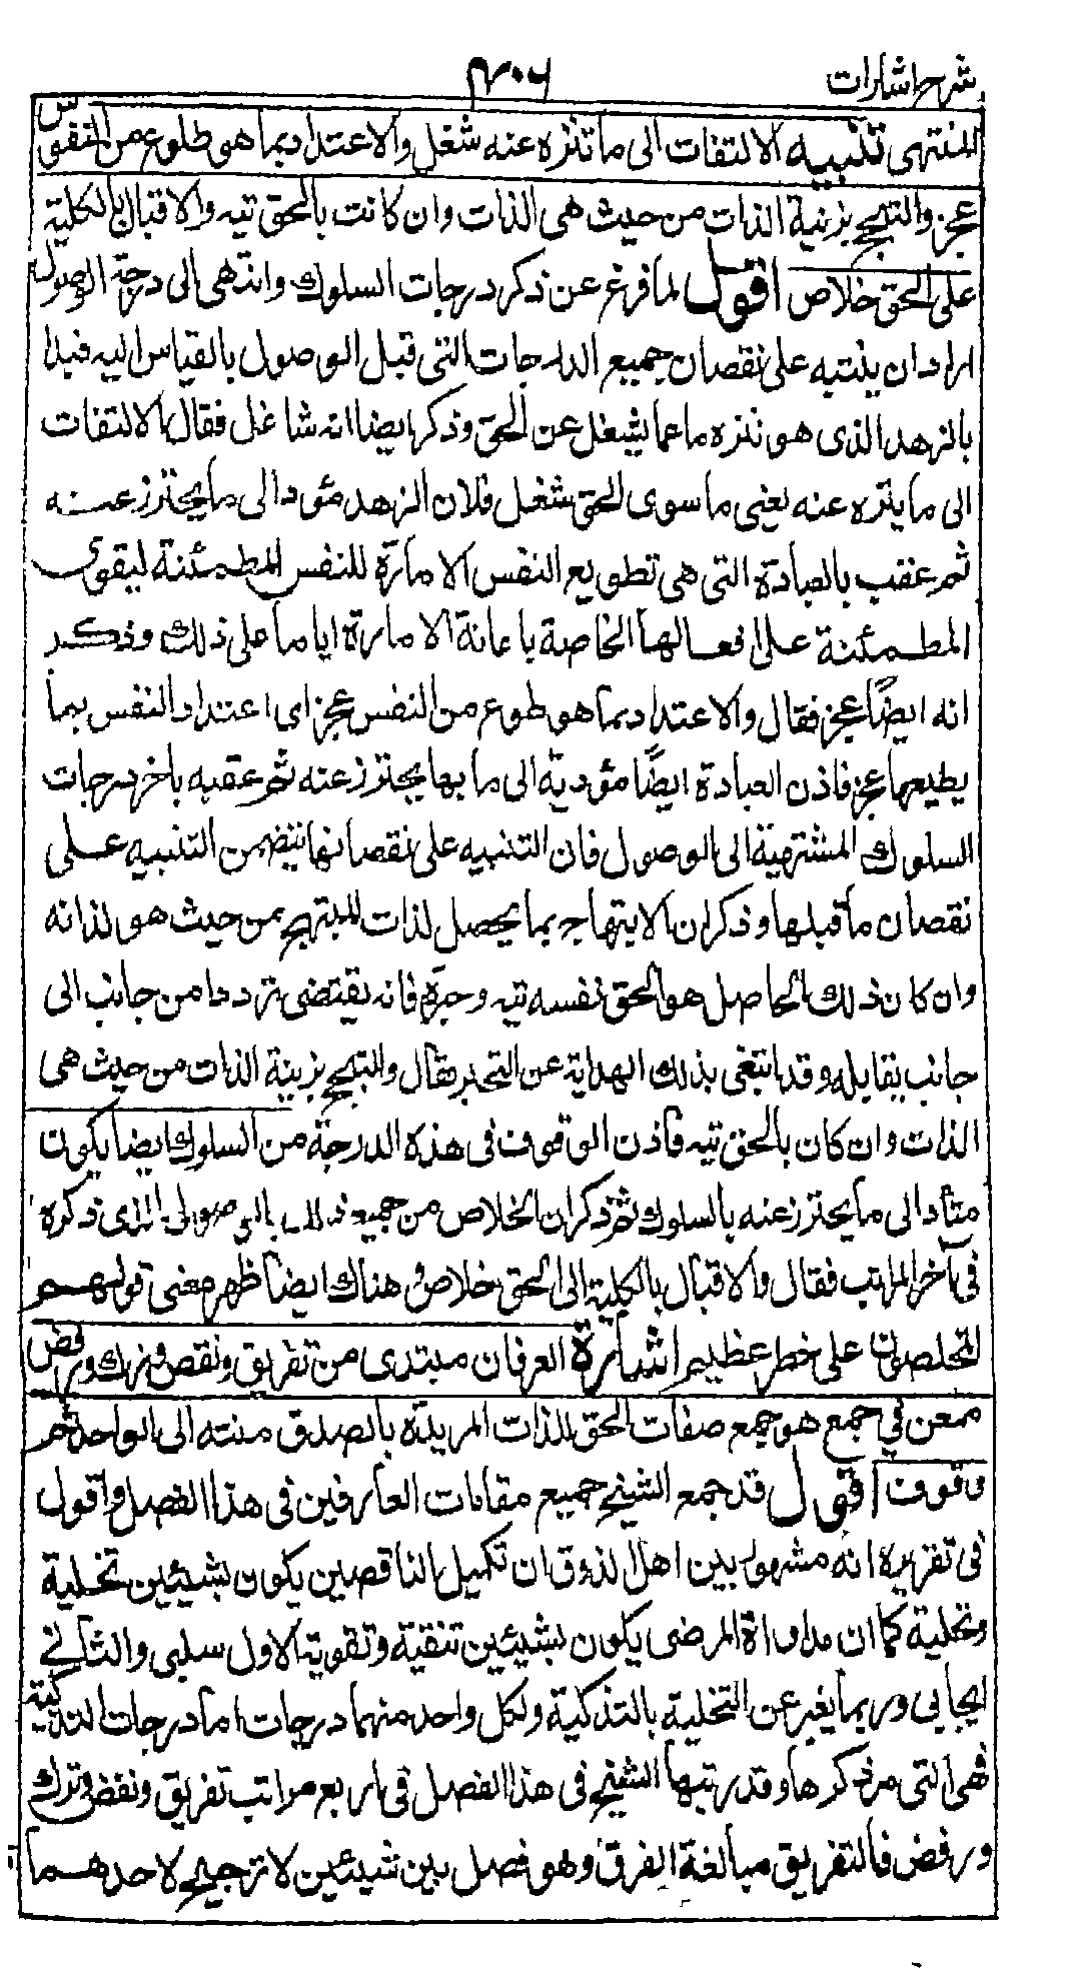 شرح اشارات
المنتهى تنبيه الالتفات الى ما تنزه عنه شغل والاعتداد بما هو طلوع من النفس
عجز والتبجح بزينة الذات من حيث هى الذات وان كانت بالحق تيه والاقبال بالكلية
على الحق خلاص اقول لما فرغ عن ذكر درجات السلوك وانتهى الى درجة الوصول
اراد ان ينبه على نقصان جميع الدرجات التى قبل الوصول بالقياس اليه فبدا
بالزهد الذى هو تنزه ما عما يشغل عن الحق وذكر ايضا انه شاغل فقال الالتفات
الى ما يتزه عنه يعنى ما سوى الحق شغل فلان الزهد مئود الى ما يحترز عنه
ثم عقب بالعبادة التى هى تطويع النفس الامارة للنفس المطمئنة ليقوى
المطمئنة على افعالها الخاصة باعانة الامارة اياها على ذلك وذكر
انه ايضًا عجز فقال والاعتداد بما هو طوع من النفس عجز اى اعتداد النفس بما
يطيعها عجز فاذن العبادة ايضًا مئودية الى ما بها يحترز عنه ثم عقبه باخر درجات
السلوك المنتهية الى الوصول فان التنبيه على نقصانها يتضمن التنبيه على
نقصان ما قبلها وذكر ان الابتهاج بما يحصل لذات المبتهج من حيث هو لذاته
وان كان ذلك الحاصل هو الحق نفسه تيه وحيرة فانه يقتضى ترددا من جانب الى
جانب يقابله وقد انتفى بذلك الهداية عن التحير فقال والتبجح بزينة الذات من حيث هى
الذات وان كان بالحق تيه فاذن الوقوف فى هذه الدرجة من السلوك ايضا يكون
متأد الى ما يحترز عنه بالسلوك ثم ذكر ان الخلاص من جميع ذلك بالوصول الذى ذكره
فى آخر المراتب فقال والاقبال بالكلية الى الحق خلاص وهناك ايضا ظهر معنى قولهم
المخلصون على خطر عظيم اشارة العرفان مبتدى من تفريق ونقص وترك ورفض
ممعن فى جمع هو جمع صفات الحق للذات المريدة بالصدق منته الى الواحد ثم
وقوف اقول قد جمع الشيخ جميع مقامات العارفين فى هذا الفصل واقول
فى تقريره انه مشهور بين اهل الذوق ان تكميل الناقصين يكون بشيئين تخلية
وتحلية كما ان مداواة المرضى يكون بشيئين تنقية وتقوية الاول سلبى والثانى
ايجابى وربما يغبر عن التخلية بالتذكية ولكل واحد منهما درجات اما درجات التذكية
فهى التى مر ذكرها وقد رتبها الشيخ فى هذا الفصل فى اربع مراتب تفريق ونقض وترك
ورفض فالتفريق مبالغة الفرق وهو فصل بين شيئين لا ترجيح لاحدهما